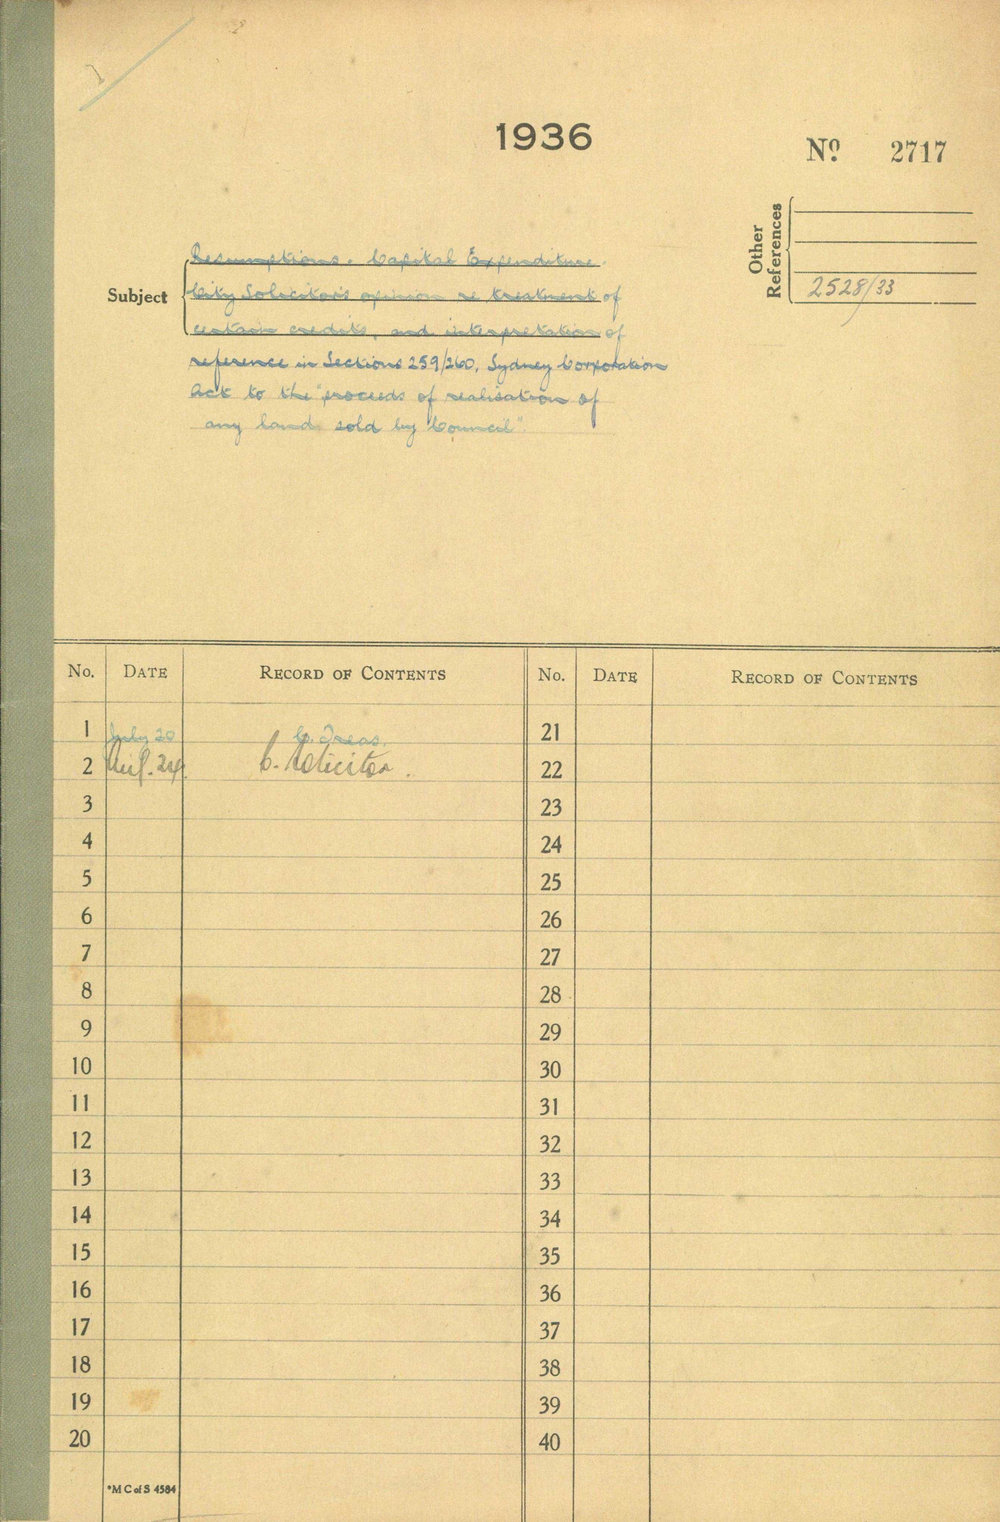 1
1936
No. 2717
Other References
2528/33
Subject
Resumptions. Capital Expenditure.
City Solicitor's opinion re treatment of
certain credits, and interpretation of
reference in Sections 259/260, Sydney Corporation
Act to the "proceeds of realisation of
any land sold by Council".
No. DATE RECORD OF CONTENTS No. DATE RECORD OF CONTENTS
1 July 20 C. Treas. 21
2 Aug. 24 C. Solicitor. 22
3 23
4 24
5 25
6 26
7 27
8 28
9 29
10 30
11 31
12 32
13 33
14 34
15 35
16 36
17 37
18 38
19 39
20 40
*M C of S 4584